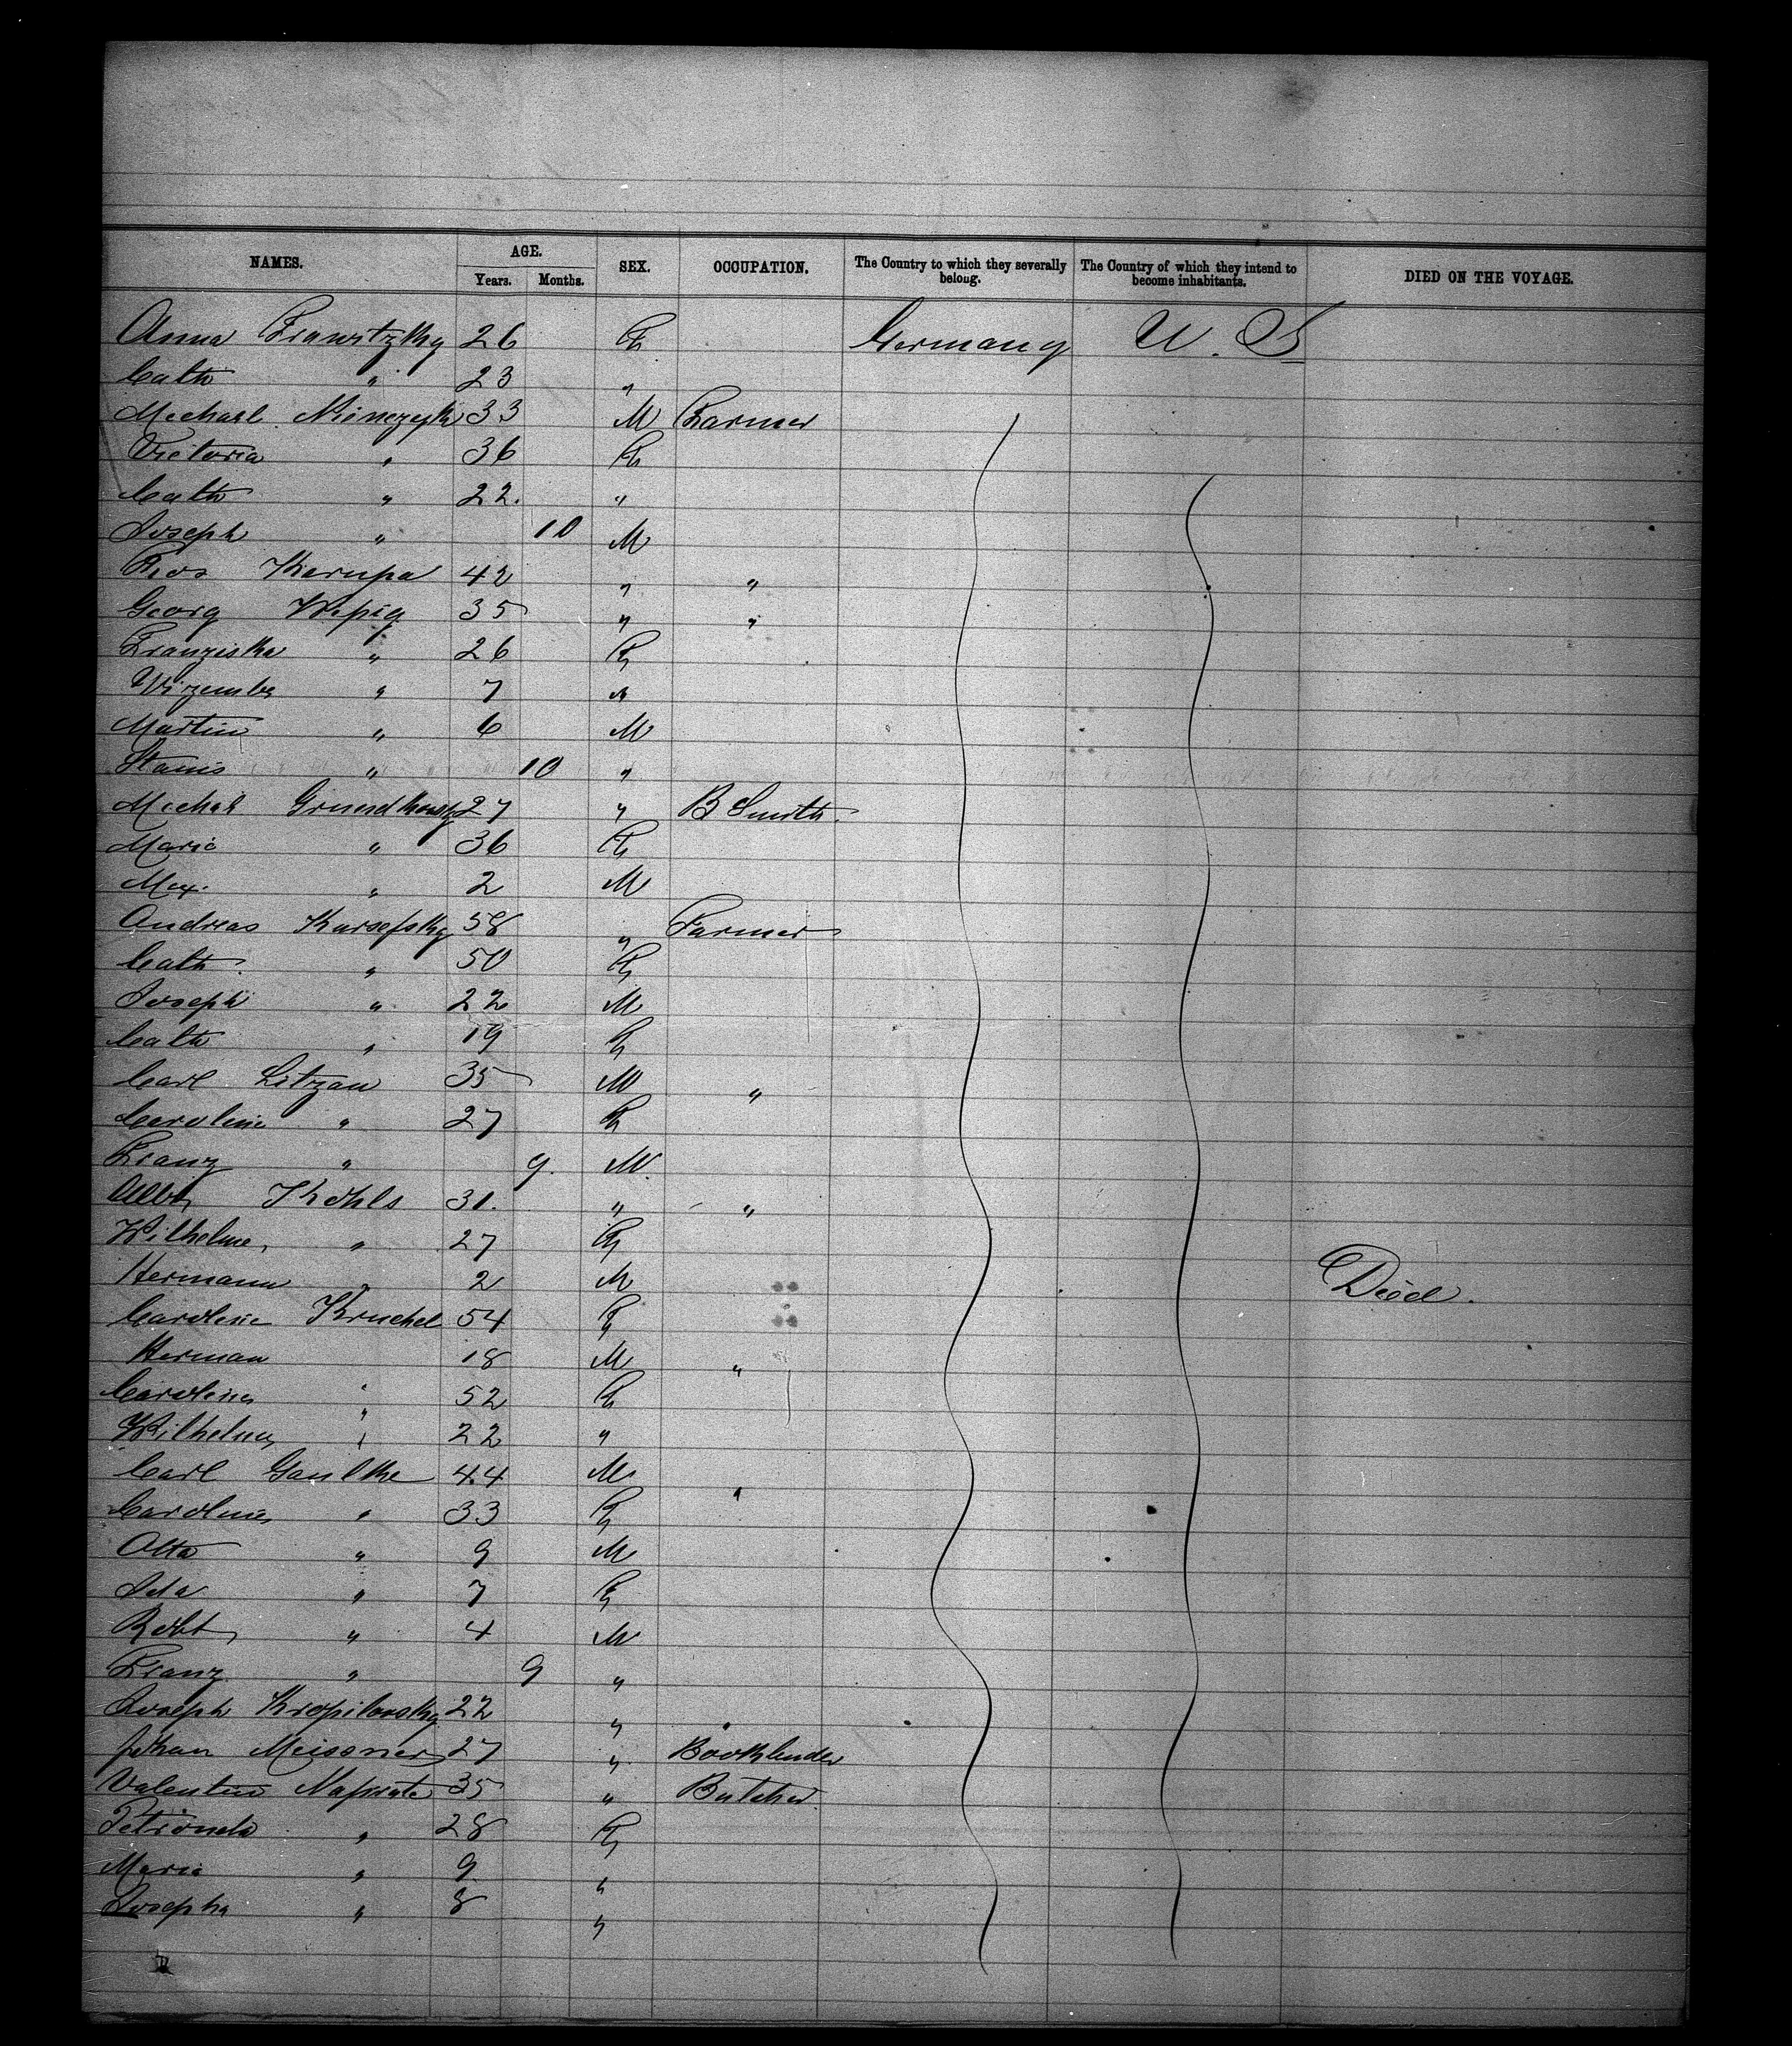 NAMES. AGE. SEX. OCCUPATION. The Country to which they severally belong. The Country of which they intend to become inhabitants. DIED ON THE VOYAGE.
Years. Months.
Anna Frawitzky 26 F Germany U. S
Cath " 23 "
Mechael 33 M Farmer
Victoria " 36 F
Cath " 22. "
Joseph " 10 M
Karupa 42 " "
Georg 35 " "
Franziska " 26 F
" 7 "
Martin " 6 M
Stanis " 10 "
Michal 27 " B Smith.
Marie " 36 F
Max. " 2 M
Andreas Kursefsky 58 " Farmer
Cath. " 50 F
Joseph " 22 M
Cath " 19 F
Carl Litzau 35 M "
Caroline " 27 F
Franz " 9. M
Albt Kohls 31. " "
Wilhelme " 27 F
Hermann " 2 M Died.
Caroline Kruchel 54 F
Herman 18 M "
Caroline " 52 F
Wilhelme " 22 "
Carl Gaulke 44 M "
Caroline " 33 F
Otto " 9 M
Ida " 7 F
Robt " 4 M
Franz " 9 "
Joseph Kropilovsky 22 " "
Johan Meissner 27 " Bookbinder
Valentin 35 " Butcher
Petronela " 28 F
Marie " 9 "
Josepha " 8 "